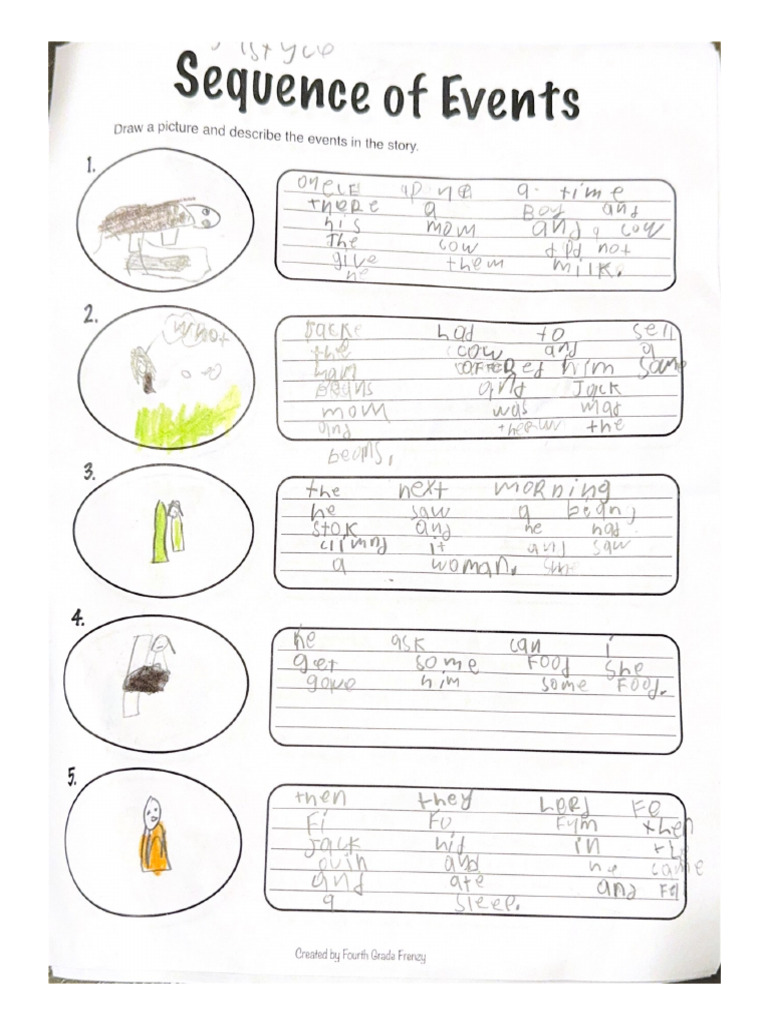 Sequence of Events
Draw a picture and describe the events in the story.
1.
oncle apone a time
there a Boy and
his mom and a cow
The cow did not
give them milk.
he
2.
What
Jacke had to sell
the cow and a
man offered him some
beans and Jack
mom was mad
and threw the
beans,
3.
the next morning
he saw a beang
stok and he had
climnd it and saw
a woman. She
4.
he ask can i
get some Food she
gave him some Food.
5.
then they herd Fe
Fi Fo Fum then
Jack hid in the
ovin and he came
and ate and Fell
a sleep.
Created by Fourth Grade Frenzy